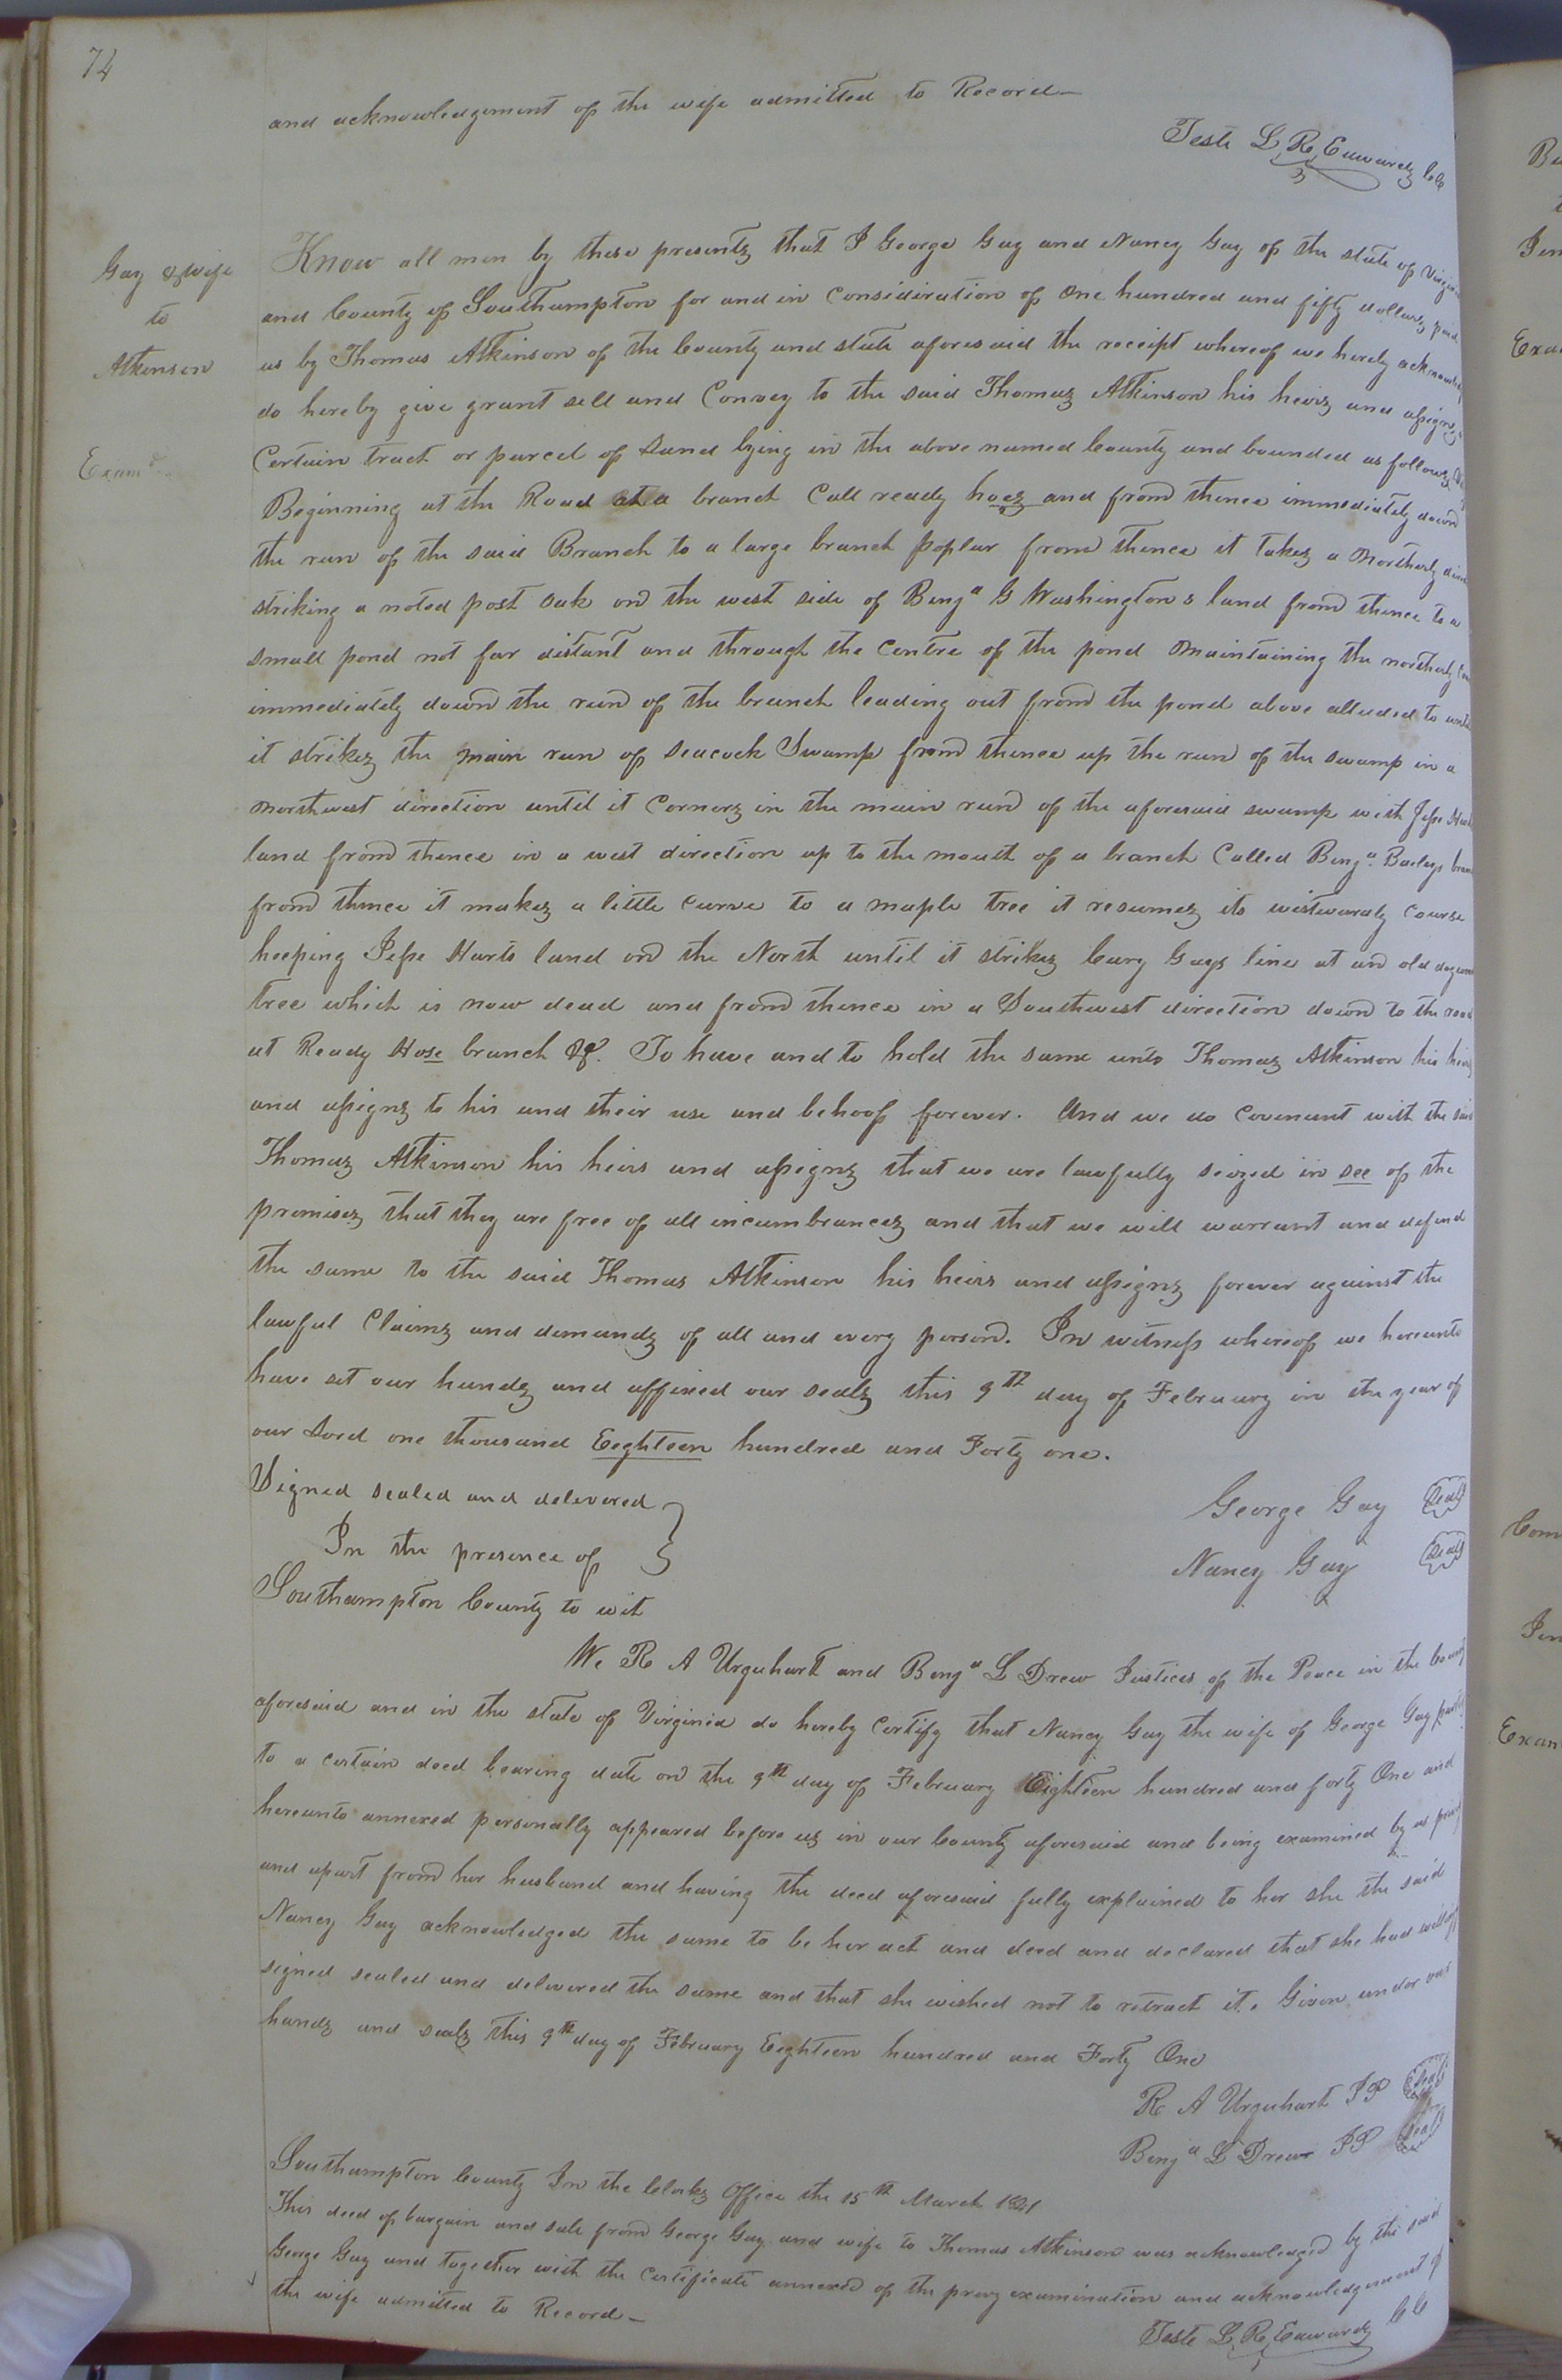 74
and acknowledgement of the wife admitted to Record
Teste L. R. Edwards CC
Gay & wife
to
Atkinson
Examd
Know all men by these presents that I George Gay and Nancy Gay of the state of Virginia
and County of Southampton for and in Consideration of One hundred and fifty dollars paid
us by Thomas Atkinson of the County and state aforesaid the receipt whereof we hereby acknowledge
do hereby give grant sell and Convey to the said Thomas Atkinson his heirs and assigns a
Certain tract or parcel of Land lying in the above named County and bounded as follows
Beginning at the Road at a branch Call ready hoes and from thence immediately down
the run of the said Branch to a large branch poplar from thence it takes a Northerly
striking a noted post oak on the west side of Benja G Washingtons land from thence to a
small pond not far distant and through the Centre of the pond Maintaining the northerly
immediately down the run of the branch leading out from the pond above alluded to until
it strikes the main run of Seacock Swamp from thence up the run of the swamp in a
Northwest direction until it Corners in the main run of the aforesaid swamp with Jesse Harts
land from thence in a west direction up to the mouth of a branch Called Benja. Baileys branch
from thence it makes a little curve to a maple tree it resumes its westwardly Course
keeping Jesse Harts land on the North until it strikes Cary Gays line at an old dogwood
tree which is now dead and from thence in a Southwest direction down to the road
at Ready Hose branch &c. To have and to hold the same unto Thomas Atkinson his heirs
and assigns to his and their use and behoof forever. And we do Covenant with the said
Thomas Atkinson his heirs and assigns that we are lawfully seized in see of the
premises that they are free of all incumbrances and that we will warrant and defend
the same to the said Thomas Atkinson his heirs and assigns forever against the
lawful Claims and demands of all and every person. In witness whereof we hereunto
have set our hands and affixed our seals this 9th day of February in the year of
our Lord one thousand Eeghteen hundred and Forty one.
Signed sealed and delivered
In the presence of
George Gay Seal
Nancy Gay Seal
Southampton County to wit
We R A Urquhart and Benja L Drew Justices of the Peace in the County
aforesaid and in the state of Virginia do hereby Certify that Nancy Gay the wife of George Gay parties
to a certain deed bearing date on the 9th day of February Eighteen hundred and forty One and
hereunto annexed personally appeared before us in our County aforesaid and being examined by us privily
and apart from her husband and having the deed aforesaid fully explained to her she the said
Nancy Gay acknowledged the same to be her act and deed and declared that she had willingly
signed sealed and delivered the same and that she wished not to retract it. Given under our
hands and seals this 9th day of February Eighteen hundred and Forty One
R A Urquhart JP Seal
Benja L Drew JP Seal
Southampton County In the Clerks Office the 15th March 1841
This deed of bargain and sale from George Gay and wife to Thomas Atkinson was acknowledged by the said
George Gay and together with the Certificate annexed of the privy examination and acknowledgement of
the wife admitted to Record
Teste L. R. Edwards CC